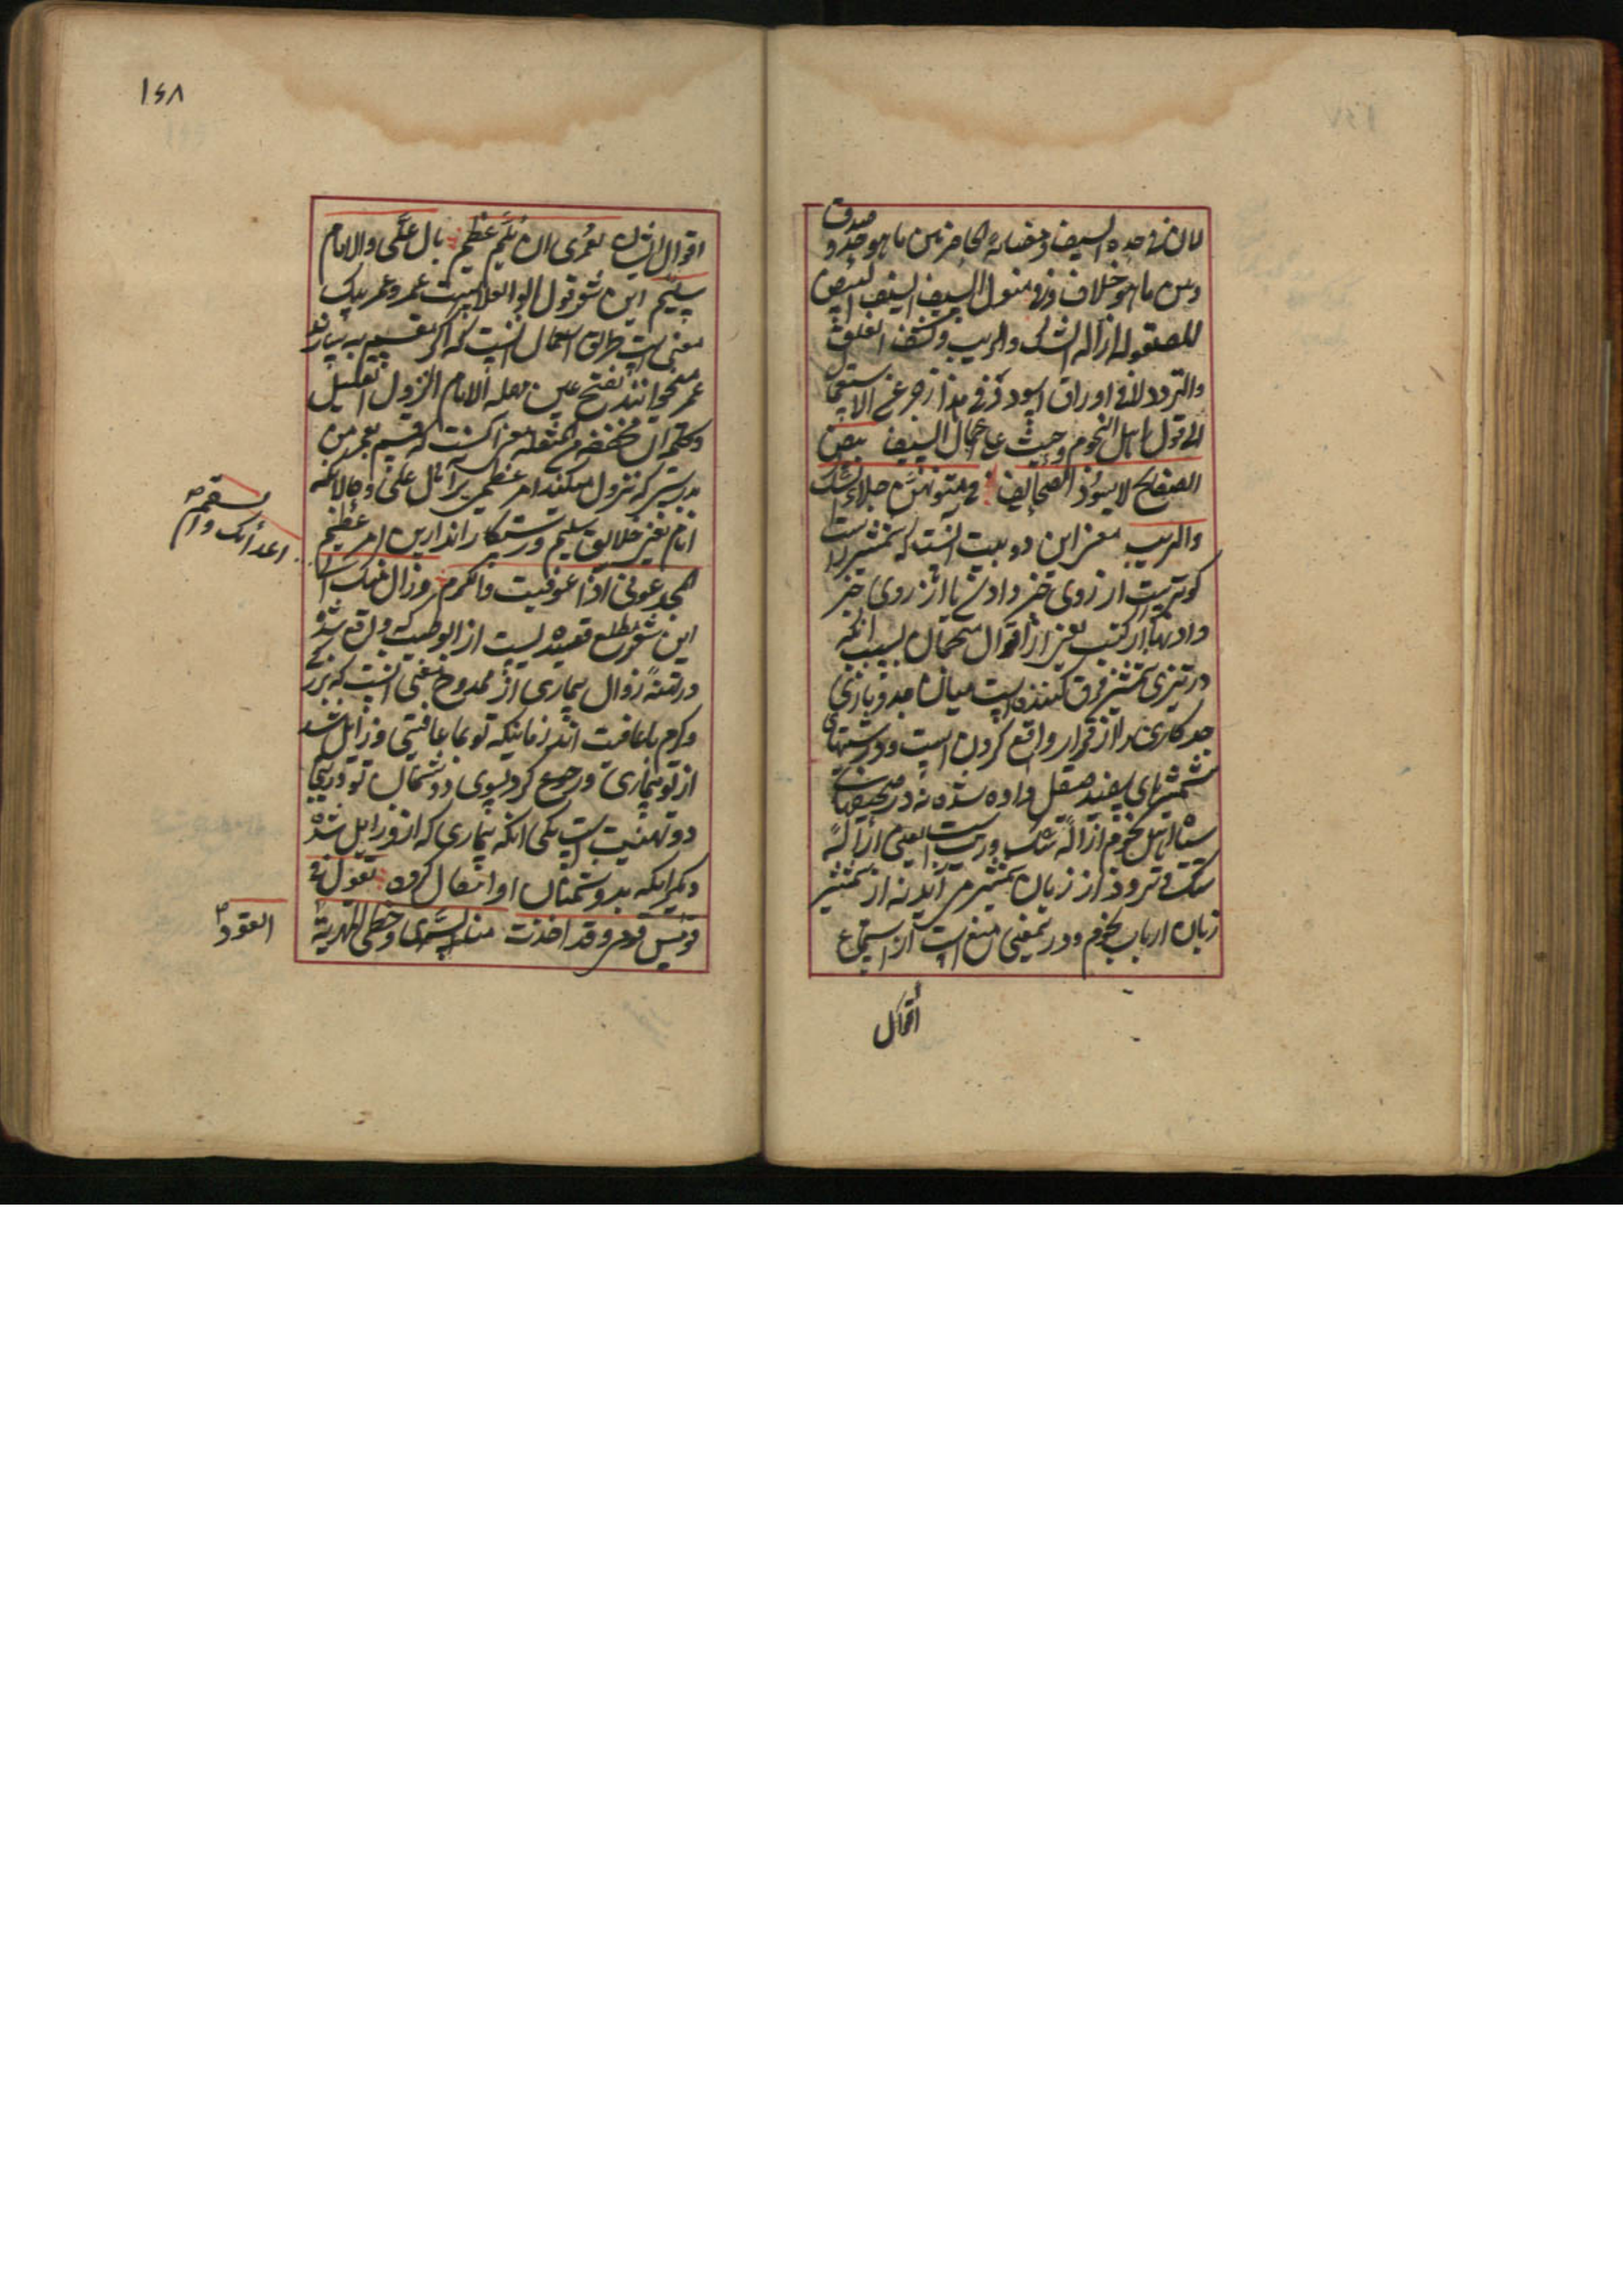 لان فی حده السیف و مضائه الحاجز بین ما هو جد و صدق
و بین ما هو خلاف و فی متون السیف السیف البیض
للصقوله ازالة الشک والریب و کشف القلق
والتردد لا فی اوراق اسود و فی هذا زجر عن الاستماع
الی قول اهل النجوم وحث علی اعمال السیف بیض
الصفایح لا سود الصحایف فی متونهن جلاء الشک
والریب معنی این دو بیت آنست که شمشیر راست
کوتریست از روی خبر دادن یا از روی خبر
دادنها از کتب یعنی از اقوال منجمان بسبب آنکه
در تیزی شمشیر فرق کننده است میان جد و بازی
جد کاری را از قرار واقع کردن است و در پشتهای
شمشیرهای سفید صقل داده شده نه در صحیفهای
سیاه اهل نجوم ازالهٔ شک و ریب است یعنی ازالهٔ
شک و تردد از زبان شمشیر می آید نه از شمشیر
زبان ارباب نجوم و در تمعنی منع است از استماع
اقوال
١٤٨
اقوال ایشان لعمری ان یلم عظیم بال علی والانام
سلیم این شعر قول ابو العلاست عمر و عمر بیک
معنی است طریق استعمال آنست که اگر بقسم بیارند
عمر میخوانند بفتح عین مهمله الالمام النزول القلیل
و کلمه ان مخففه من المثقله معنی آنست که قسم بعمر من
بدرستی که نزول میکند امر عظمی بر آل علی و حال آنکه
انام یعنی خلایق سلیم و رستگار اند از این امر عظیم
المجد عوفی اذا عوفیت والکرم وزال عنک الی
اعدائک السقم
این شعر مطلع قصیده ایست از ابو طیب که واقع شده
در تهنیهٔ زوال بیماری از ممدوح معنی آنست که بزرگی
و کرم با عافیت اند زمانیکه تو با عافیتی و زایل شد
از تو بیماری و رجوع کرد بسوی دشمنان تو در اینجا
دو تهنیت است یکی آنکه بیماری که از او زایل شده
دیگر آنکه بدشمنان او انتقال کرده یقول فی
قومس قومی و قد اخذت منا السری و خطی المهریة
القود